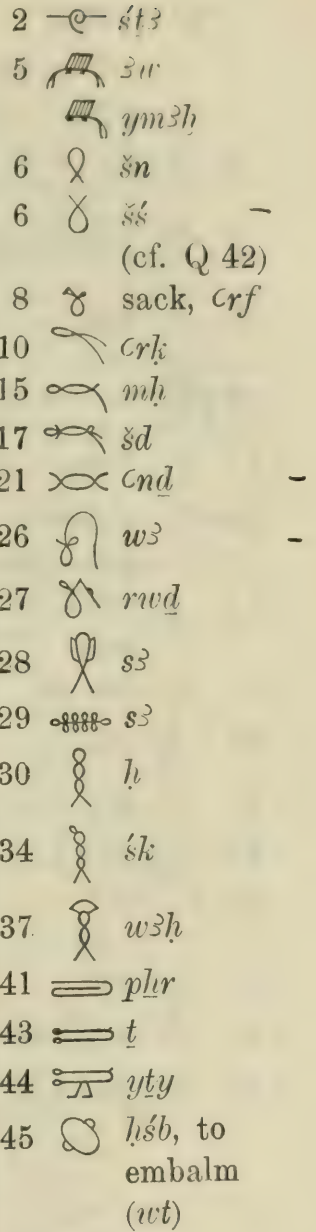 2 śṯꜣ
5 ꜣw
ymꜣḫ
6 šn
6 šś –
(cf. Q 42)
8 sack, Ꜥrf
10 Ꜥrḳ
15 mḥ
17 šd
21 Ꜥnḏ –
26 wꜣ –
27 rwḏ
28 sꜣ
29 sꜣ
30 ḥ
34 śk
37 wꜣḥ
41 pẖr
43 ṯ
44 yṯy
45 ḥśb, to
embalm
(wt)